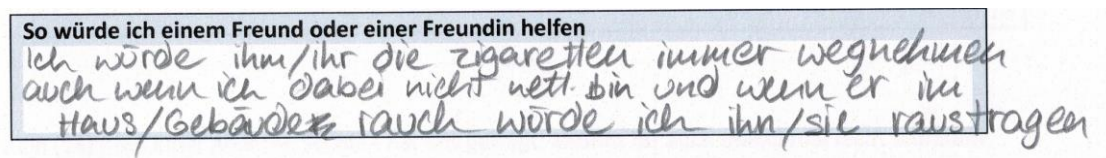 So würde ich einem Freund oder einer Freundin helfen
ich würde ihm/ihr die zigaretten immer wegnehmen
auch wenn ich dabei nicht nett bin und wenn er im
Haus/Gebäude rauch würde ich ihn/sie raustragen